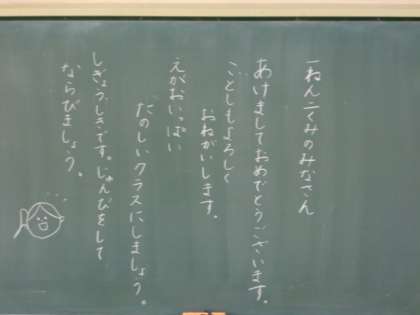 一ねん二くみのみなさん
あけましておめでとうございます。
ことしもよろしく
おねがいします。
えがおいっぱい
たのしいクラスにしましょう。
しぎょうしきです。じゅんびをして
ならびましょう。